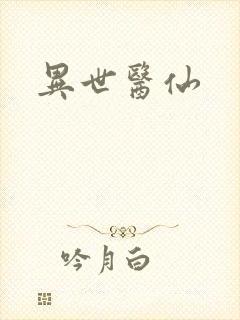 異世醫仙
吟月白